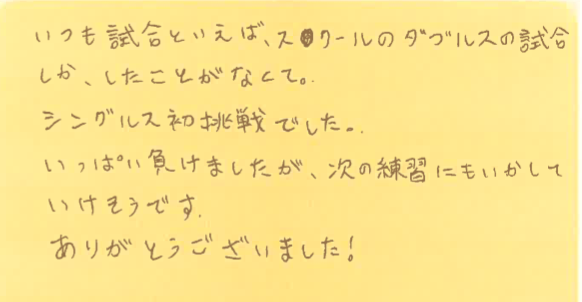 いつも試合といえば、スクールのダブルスの試合
しか、したことがなくて。
シングルス初挑戦でした。
いっぱい負けましたが、次の練習にもいかして
いけそうです.
ありがとうございました!